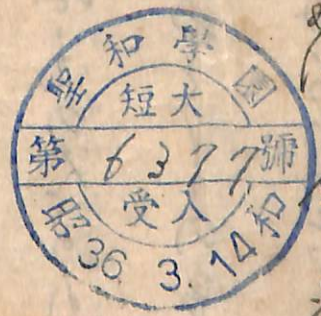 聖和學園
短大
第6377號
受入
昭和
36. 3. 14